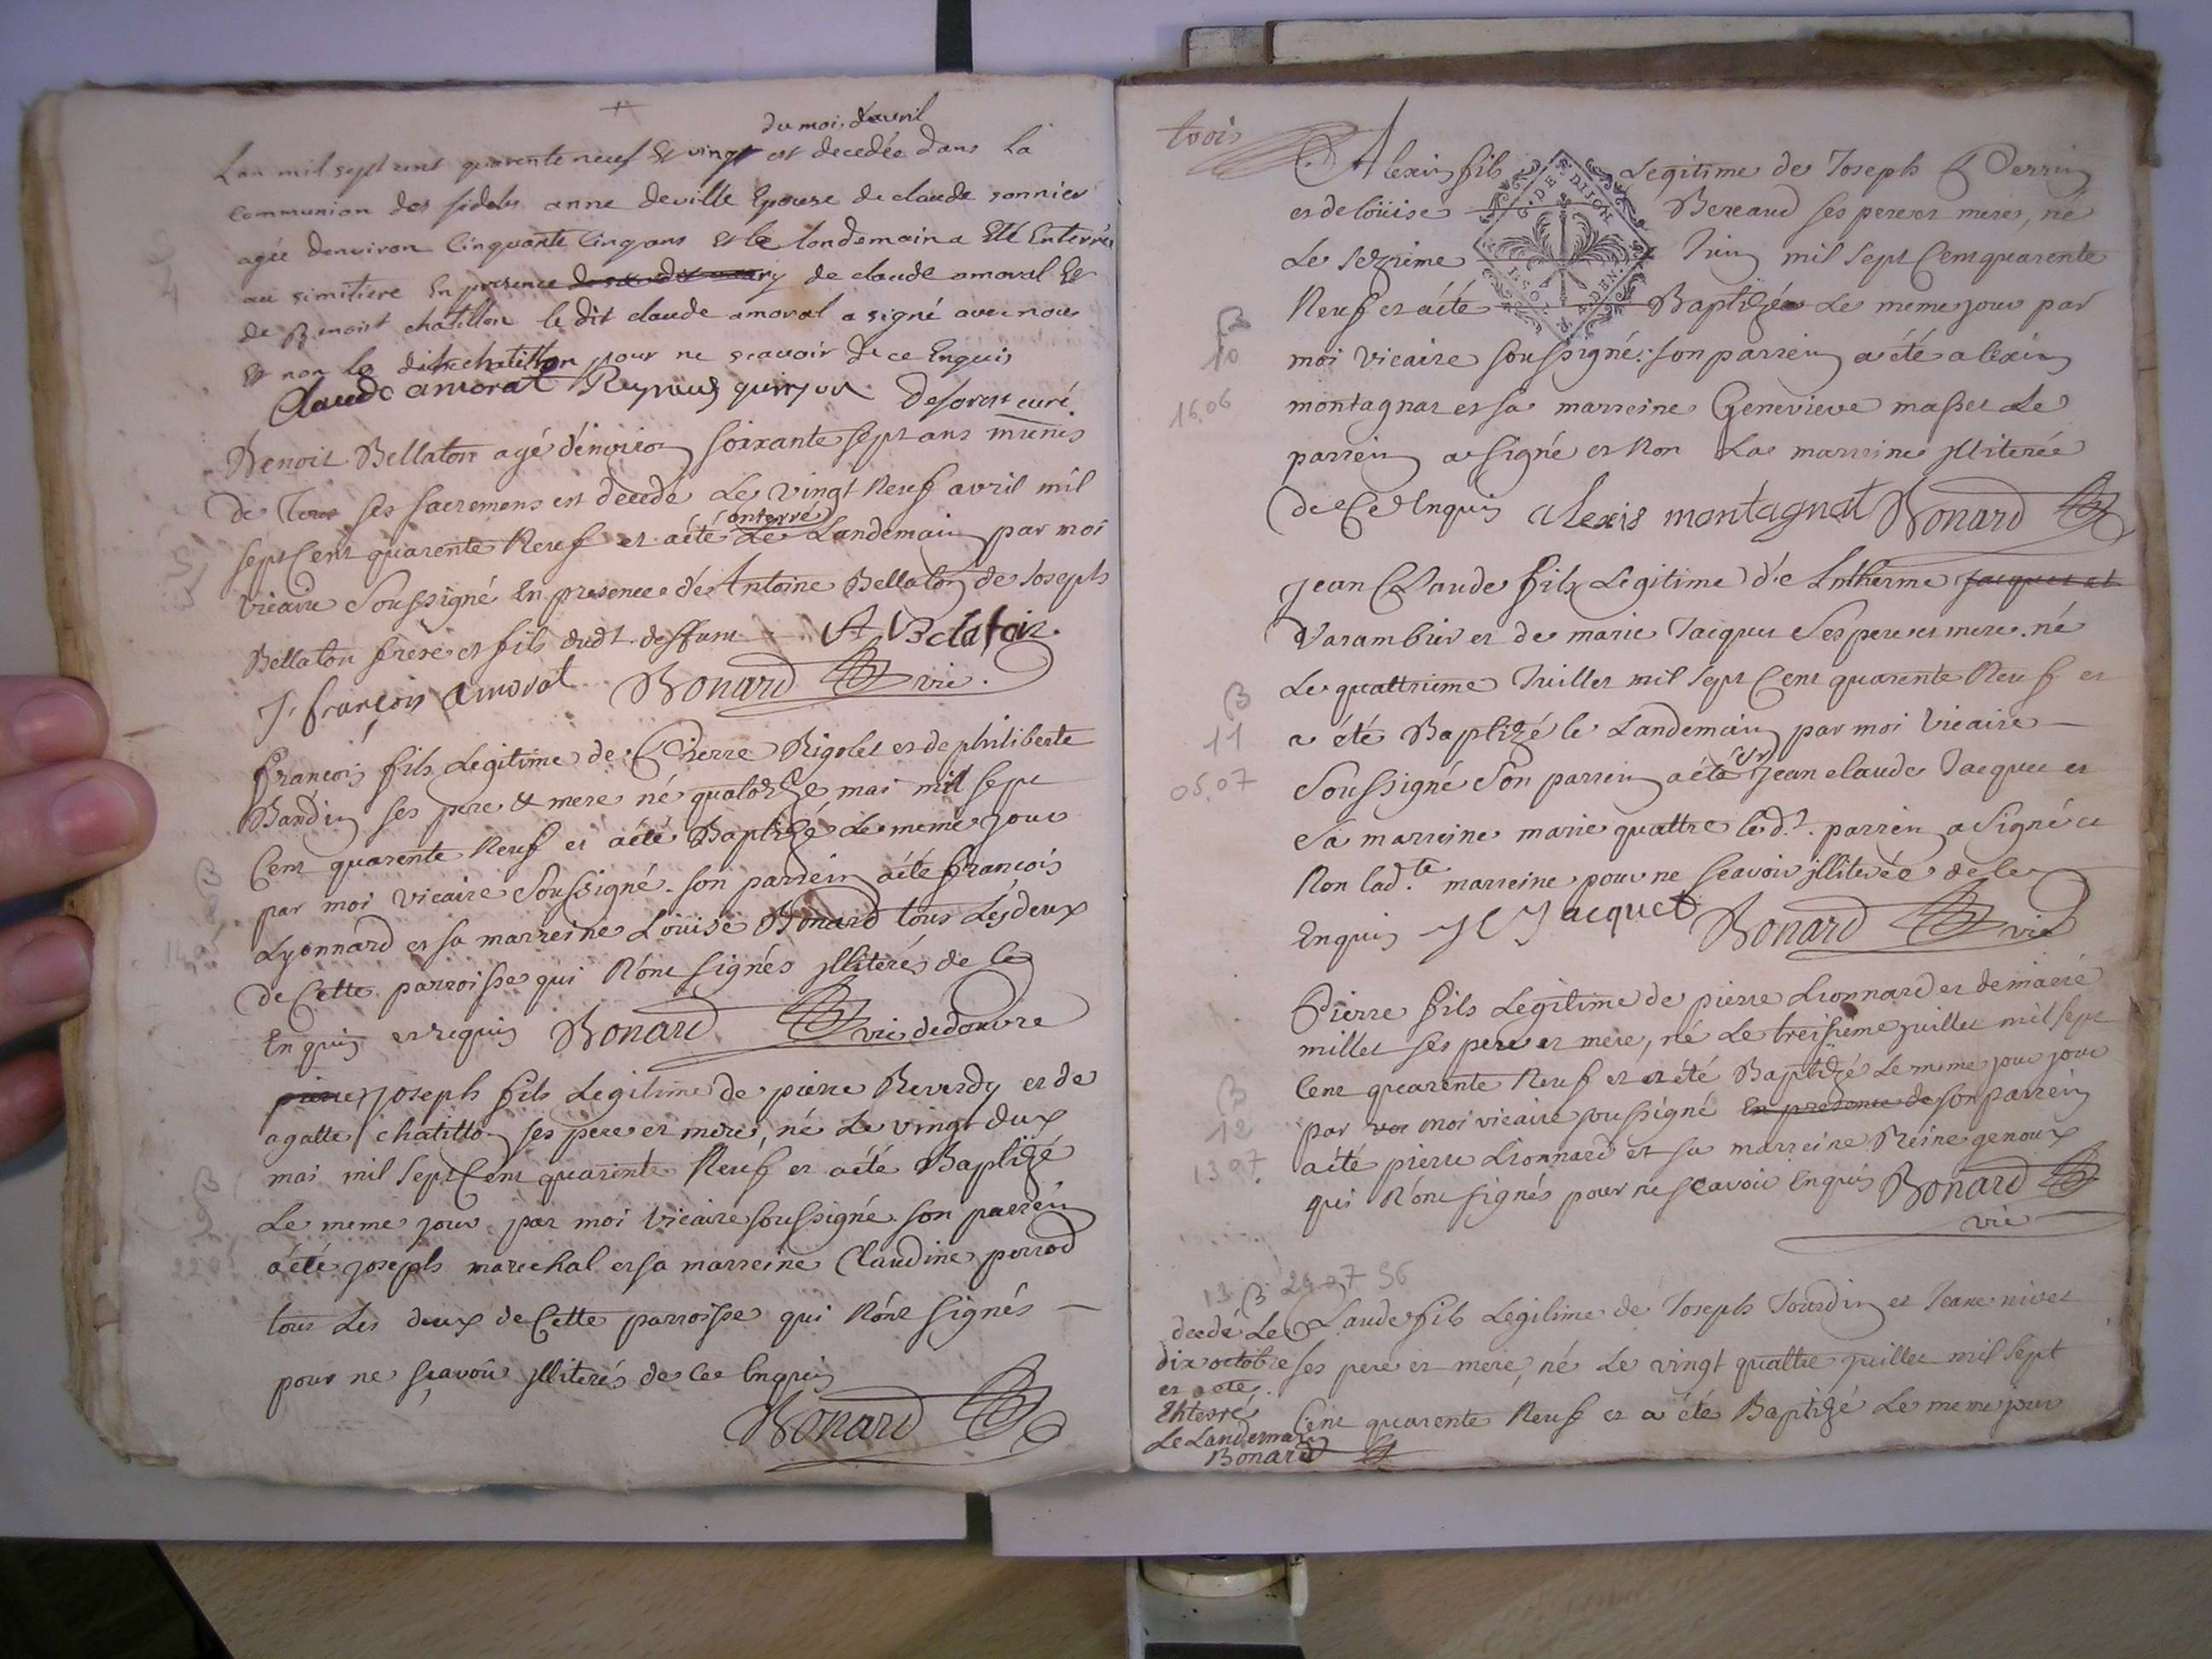 du mois d'avril
Lan mil sept cent quarente neuf Et vingt est decedée dans La
Communion des fideles anne deville Epouse de claude sonnier
agée denviron Cinquante Cinq ans Et le londemain a Eté Enterrée
au simitiere En presence de claude amoral Et
de Benoist chatillon le dit claude amoral a signé avec nous
Et non le dit chatillon pour ne scavoir de ce Enquis
Claude amorat Desforest curé
Benoit Bellaton agé d'environ soixante sept ans munis
de Tous ses sacremens est decedé Le vingt Neuf avril mil
sept Cent quarente Neuf et a été (enterré) Le Landemain par moi
vicaire Soussigné En presence de Antoine Bellaton de Joseph
Bellaton frere et fils dudt deffunt A Belaton
J. françois amorat Bonard vic.
françois fils Legitime de Pierre Rigolet et de philiberte
Bandin ses pere & mere né quatorze mai mil sept
Cent quarente Neuf et a été Baptizé Le meme jour
par moi vicaire Soussigné. son parrein a été françois
Lyonnard et sa marreine Louise Bonard tous Les deux
de Cette parroisse qui N'ont signés jlliterés de Ce
Enquis et requis Bonard vic de domvre
pierre Joseph fils Legitime de pierre Reverdy et de
agatte chatillon ses pere et mere, né Le vingt deux
mai mil sept Cent quarente Neuf et a été Baptizé
Le meme jour par moi Vicaire soussigné. son parrein
a été joseph marechal et sa marreine Claudine perrod
tous Les deux de Cette parroisse qui N'ont signés
pour ne sçavoir jlliterés de Ce Enquis
Bonard
trois
Alexis fils Legitime de Joseph Perrin
et de Loüise Bereaud ses pere et mere, né
Le seizieme Juin mil sept Cent quarente
Neuf et a été Baptizé Le meme jour par
G. DE DIJON
B
10
moi Vicaire soussigné: son parrein a été alexis
16.06
montagnat et sa marreine Genevieve masset Le
parrein a signé et Non La marreine jlliterée
de Ce Enquis alexis montagnat Bonard
jean Claude fils Legitime de Antherme jacquet et
Varambier et de marie Jacquet Ses pere et mere. né
Le quattrieme Juillet mil sept Cent quarente Neuf et
B
11
a été Baptizé le Landemain par moi Vicaire
05.07
Soussigné Son parrein a été sr jean claude Jacquet et
Sa marreine marie quattre led.t parrein a Signé et
Non lad.te marreine pour ne scavoir jlliterée de Ce
Enquis J C Jacquet Bonard vic
Pierre fils Legitime de pierre Lionnard et de marie
millet ses pere et mere, né Le treisieme juillet mil sept
Cent quarente Neuf et a été Baptizé Le meme jour jour
B
12
par moi vicaire soussigné En presence de son parrein
13 07.
a été pierre Lionnard et sa marreine Reine genoux
qui N'ont signés pour ne scavoir Enquis Bonard
vic
13 B 24 07 56
Claude fils Legitime de Joseph Jourdin et Jeane nivet
ses pere et mere, né Le vingt quattre juillet mil sept
Cent quarente Neuf et a été Baptizé Le meme jour
decdé Le
dix octobre
et a été
Enterré
Le Landemain
Bonard